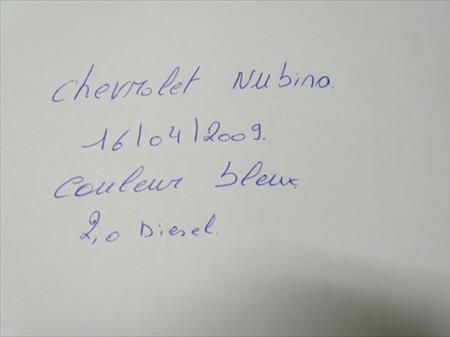 Chevrolet Nubina.
16/04/2009.
Couleur bleux
2,0 Diesel.